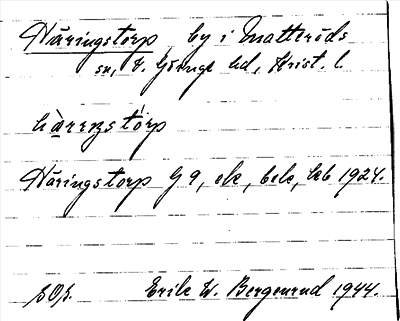 Häringstorp by i Matteröds
sn, V. Göinge hd, Krist. l
hä̀rɪŋstɔ́rp
Häringstorp G 9, ek, bek, läb 1924.
SOS. Erik W. Bergenrud 1944.